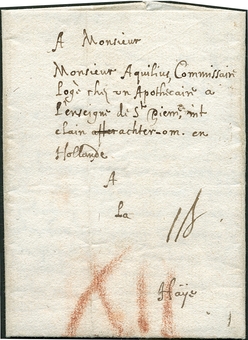 A Monsieur
Monsieur Aquilius, Commissair
Logé chez un Apothecaire a
l'enseigne de St
achter-om. en
Hollande
A
La
Haÿe
XII